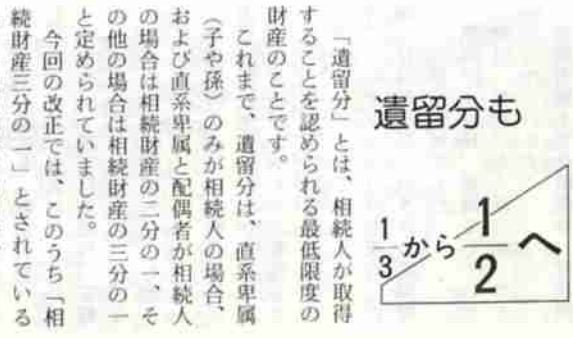 遺留分も
1/3から1/2へ
「遺留分」とは、相続人が取得
することを認められる最低限度の
財産のことです。
これまで、遺留分は、直系卑属
(子や孫)のみが相続人の場合、
および直系卑属と配偶者が相続人
の場合は相続財産の二分の一、そ
の他の場合は相続財産の三分の一
と定められていました。
今回の改正では、このうち「相
続財産三分の一」とされている